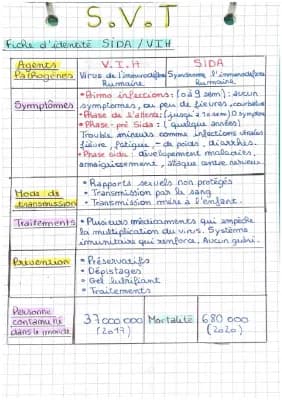 S.V.T
Fiche d'identité SIDA / VIH
Agents Pathogènes
V.I.H
SIDA
Virus de l'imunodéfience Humaine
Syndrome l'immunodéfience Humaine
Symptômes
• Primo infections : (0 à 9 sem) : aucun
symptomes, ou peu de fièvres, courbature
• Phase de l'attente : (jusqu'à 12 sem) 0 symptom
• Phase - pré Sida : ( quelques années)
Trouble mineurs comme infections virales
fièvre, fatigue, - de poids, diarrhés.
• Phase sida : dévelopement maladies,
amaigrissement, attaque centre nerveux
Mode de transmission
• Rapports sexuels non protégés
• Transmission par le sang
• Transmission mère à l'enfant.
Traitements
• Plusieurs médicaments qui empêche
la multiplication du virus. Système
imunitaire qui renforce. Aucun guéri.
Prévention
• Préservatifs
• Dépistages
• Gel lubrifiant
• Traitements
Personne contaminé dans le monde
37 000 000 (2017)
Mortalité
680 000 (2020)